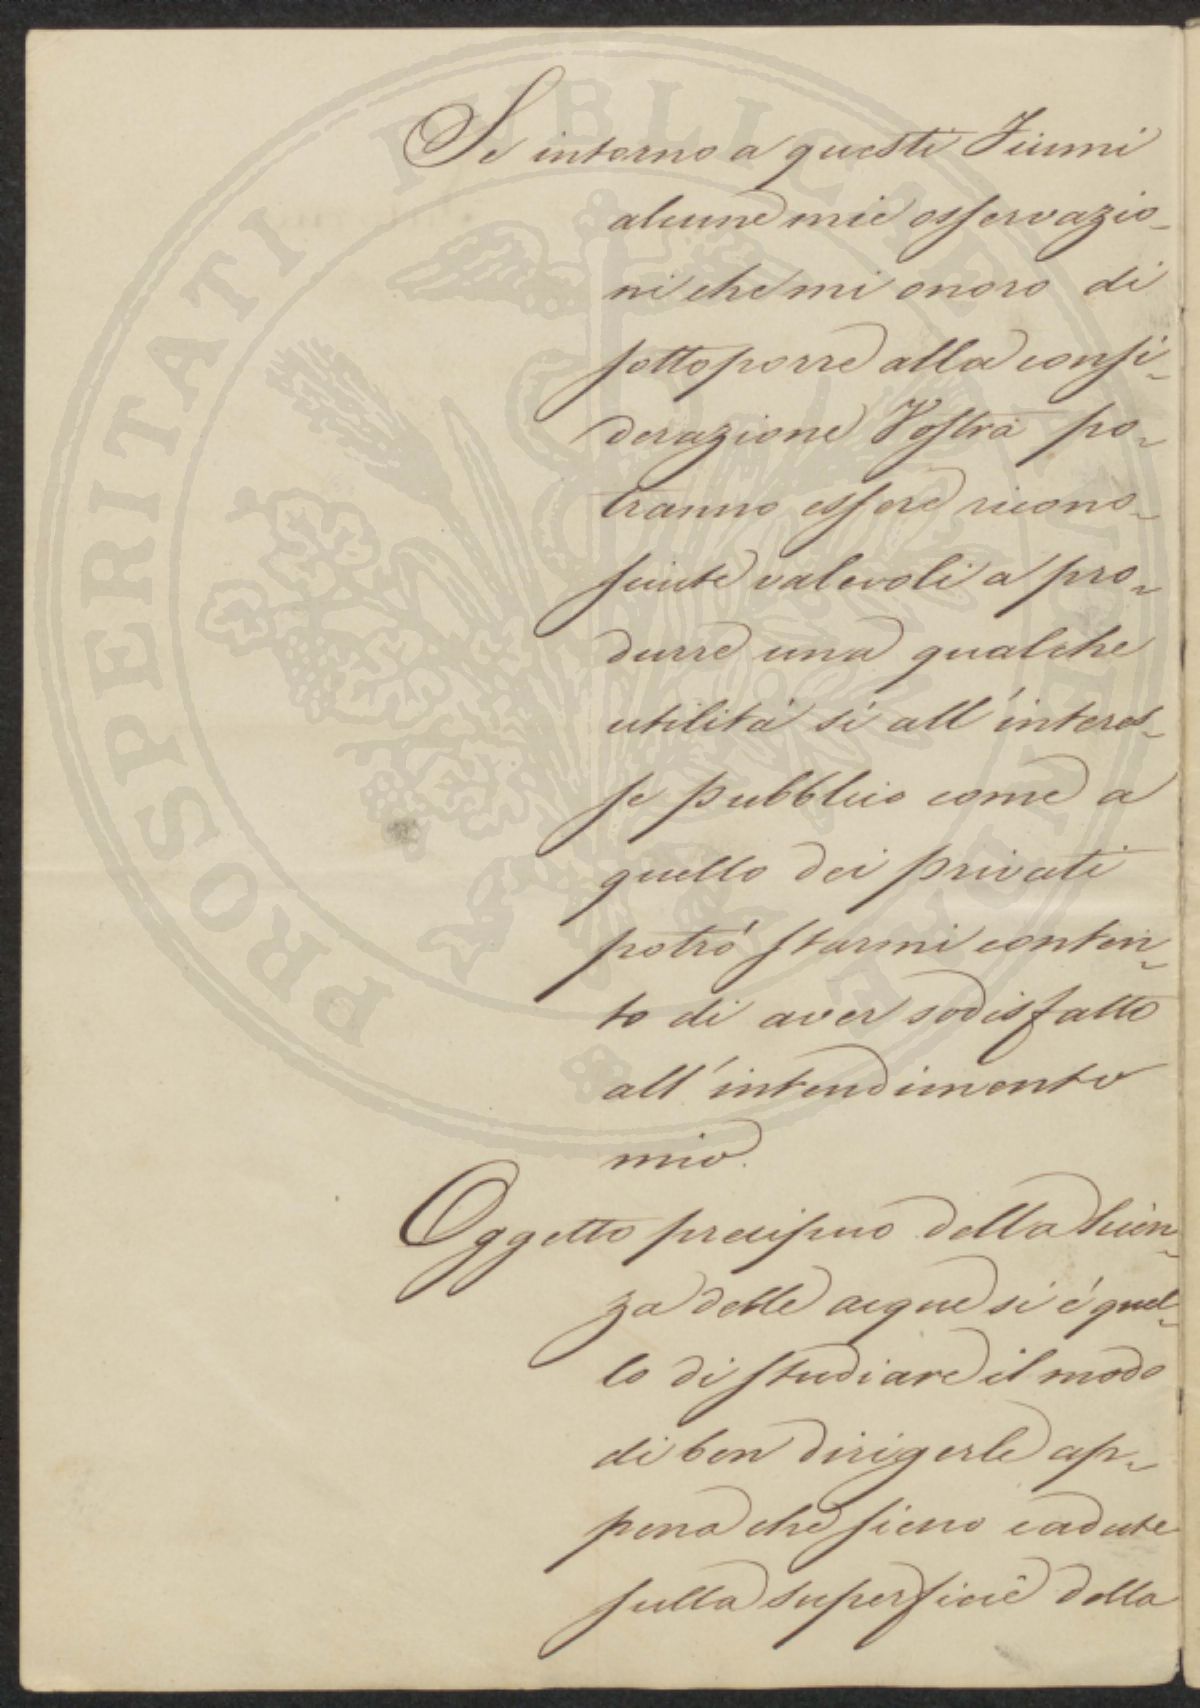 Se intorno a questi Fiumi
alcune mie osservazio-
ni che mi onoro di
sottoporre alla consi-
derazione Vostra po-
tranno essere ricono-
sciute valevoli a pro-
durre una qualche
utilità sì all'interes-
se pubblico come a
quello dei privati
potrò starmi conten-
to di aver sodisfatto
all'intendimento
mio.
Oggetto precipuo della scien-
za delle acque si é quel-
lo di studiare il modo
di ben dirigerle ap-
pena che sieno cadute
sulla superficie della
PROSPERITATI PUBLICAE